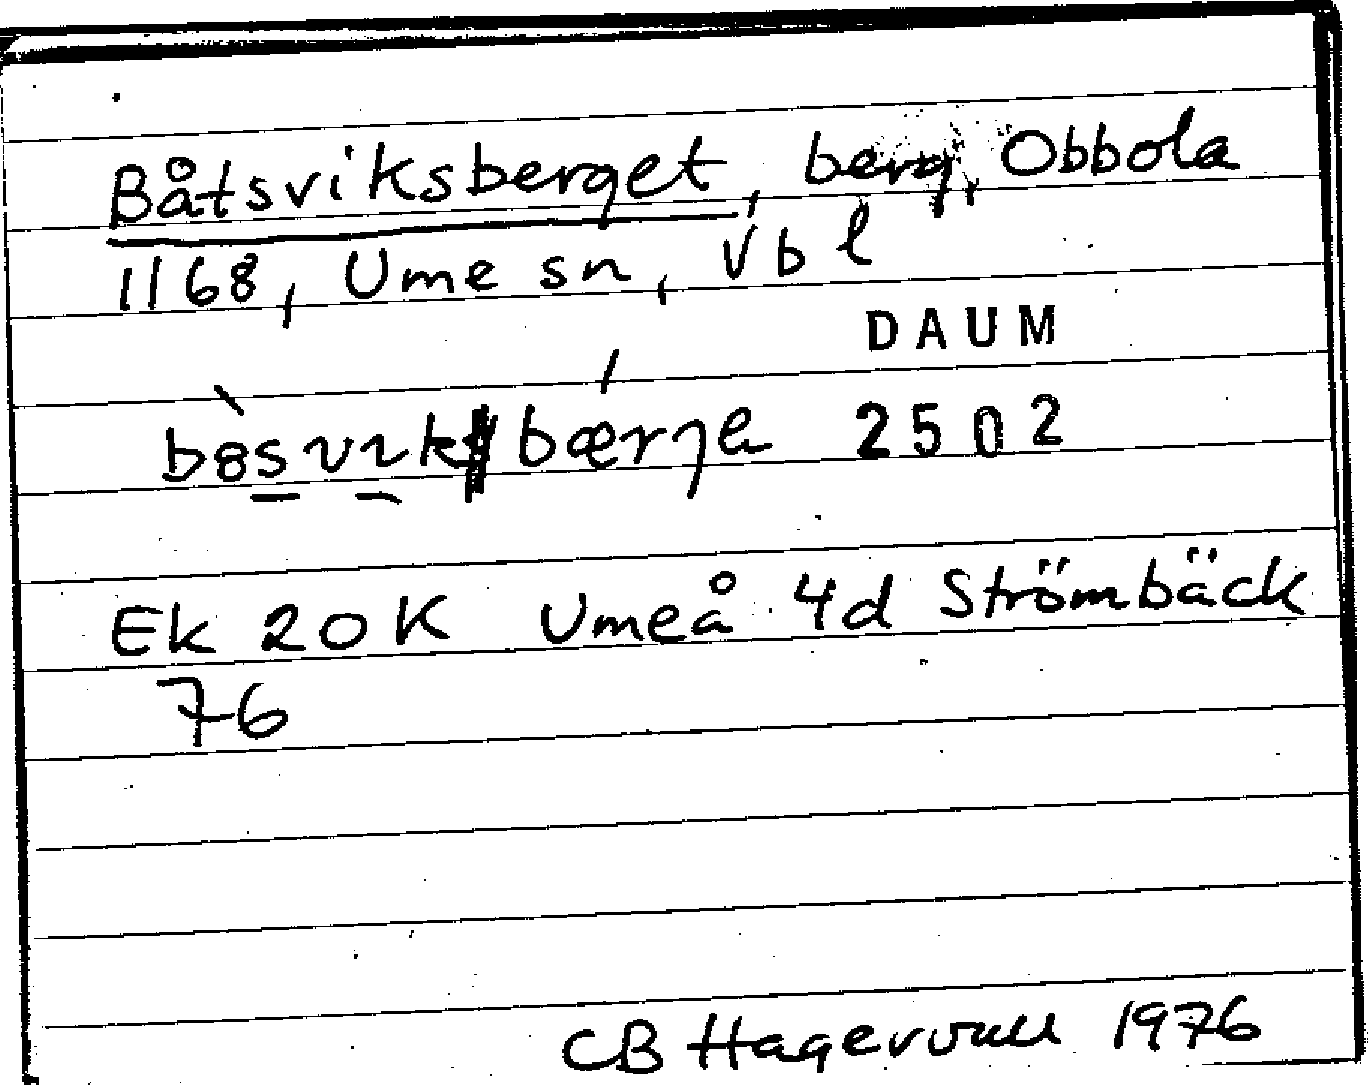 Båtsviksberget, berg, Obbola
1168, Ume sn, Vbl
DAUM
2502
Ek 20K Umeå 4d Strömbäck
76
CB Hagervall 1976